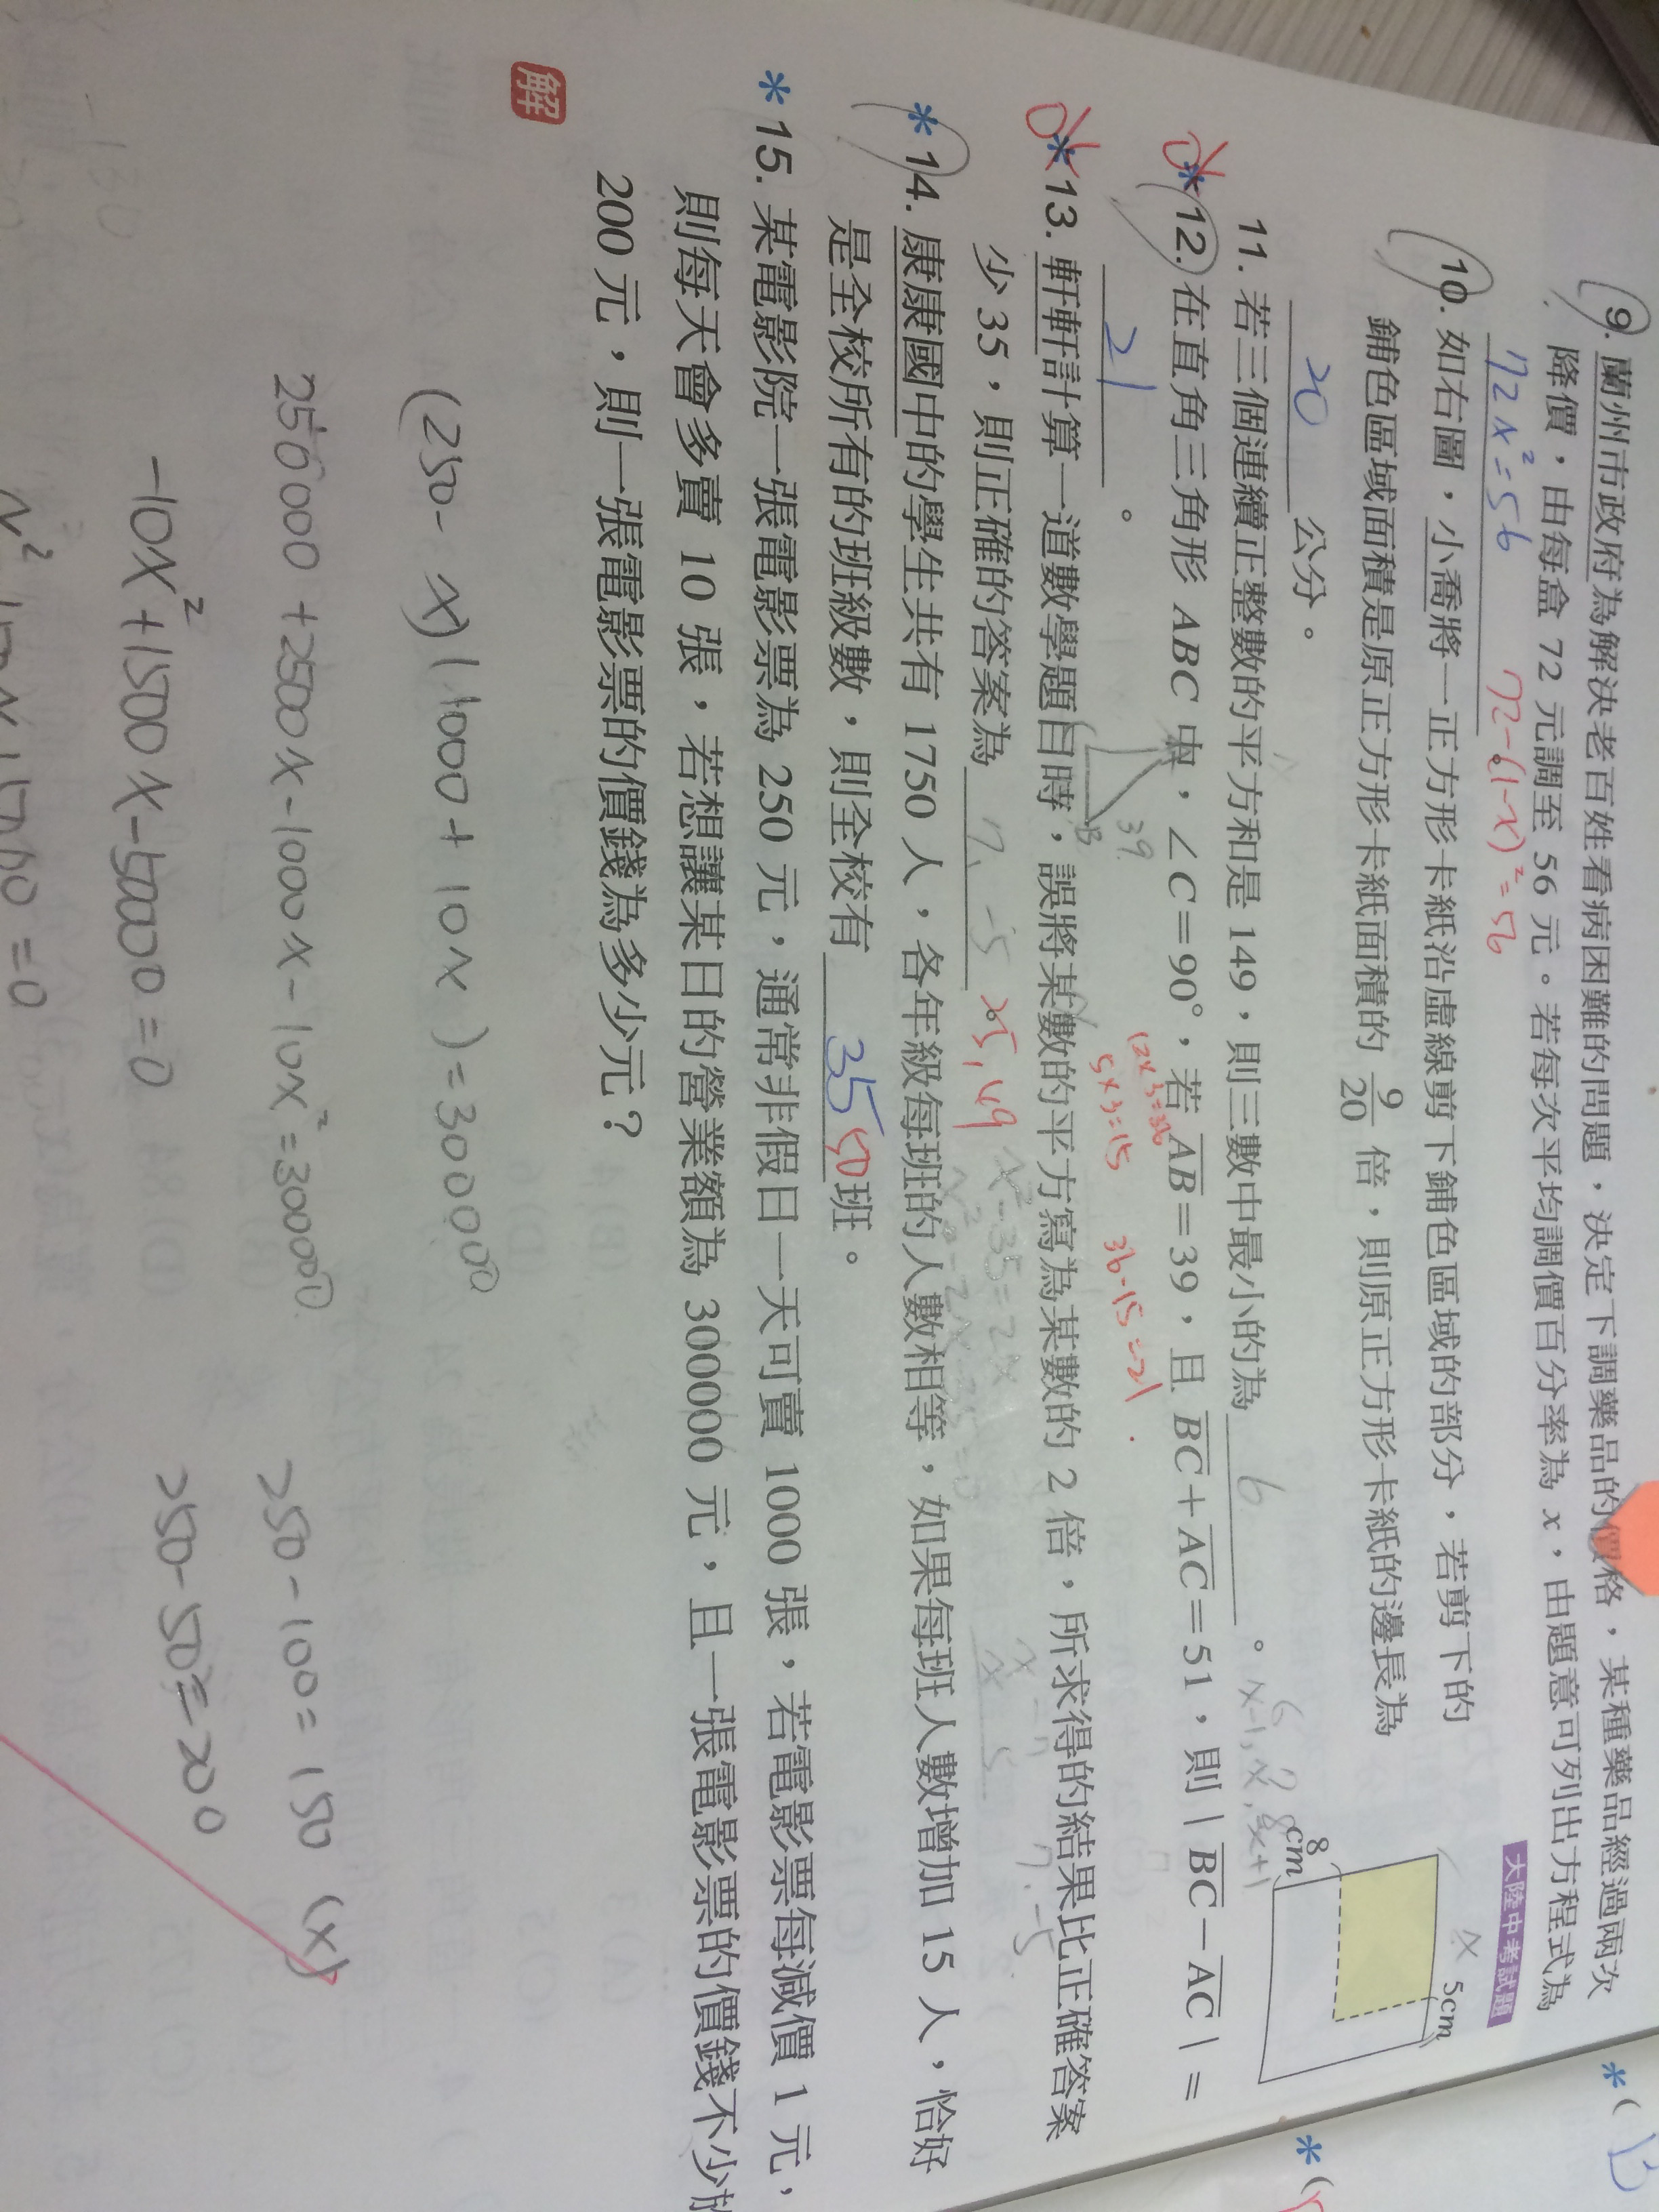 9. 蘭州市政府為解決老百姓看病困難的問題,決定下調藥品的價格,某種藥品經過兩次
降價,由每盒 72 元調至 56 元。若每次平均調價百分率為 x,由題意可列出方程式為
72x²=56 72-(1-x)²=56
大陸中考試題
10. 如右圖,小喬將一正方形卡紙沿虛線剪下鋪色區域的部分,若剪下的
鋪色區域面積是原正方形卡紙面積的 9/20 倍,則原正方形卡紙的邊長為
20 公分。
x
5cm
8
cm
11. 若三個連續正整數的平方和是 149,則三數中最小的為 6 。
6 7 8
x-1, x, x+1
*12. 在直角三角形 ABC 中,∠C=90°,若 AB=39,且 BC+AC=51,則|BC-AC|=
21 。
39
B
12×3=36
5×3=15
36-15=21
*13. 軒軒計算一道數學題目時,誤將某數的平方寫為某數的 2 倍,所求得的結果比正確答案
少 35,則正確的答案為 7、-5 25,49
x²-35=2x
7,-5
*14. 康康國中的學生共有 1750 人,各年級每班的人數相等,如果每班人數增加 15 人,恰好
是全校所有的班級數,則全校有 35 50 班。
*15. 某電影院一張電影票為 250 元,通常非假日一天可賣 1000 張,若電影票每減價 1 元,
則每天會多賣 10 張,若想讓某日的營業額為 300000 元,且一張電影票的價錢不少於
200 元,則一張電影票的價錢為多少元?
解
(250-x)(1000+10x)=300000
250000+2500x-1000x-10x²=300000
-10x²+1500x-50000=0
250-100=150 (x)
250-50=200